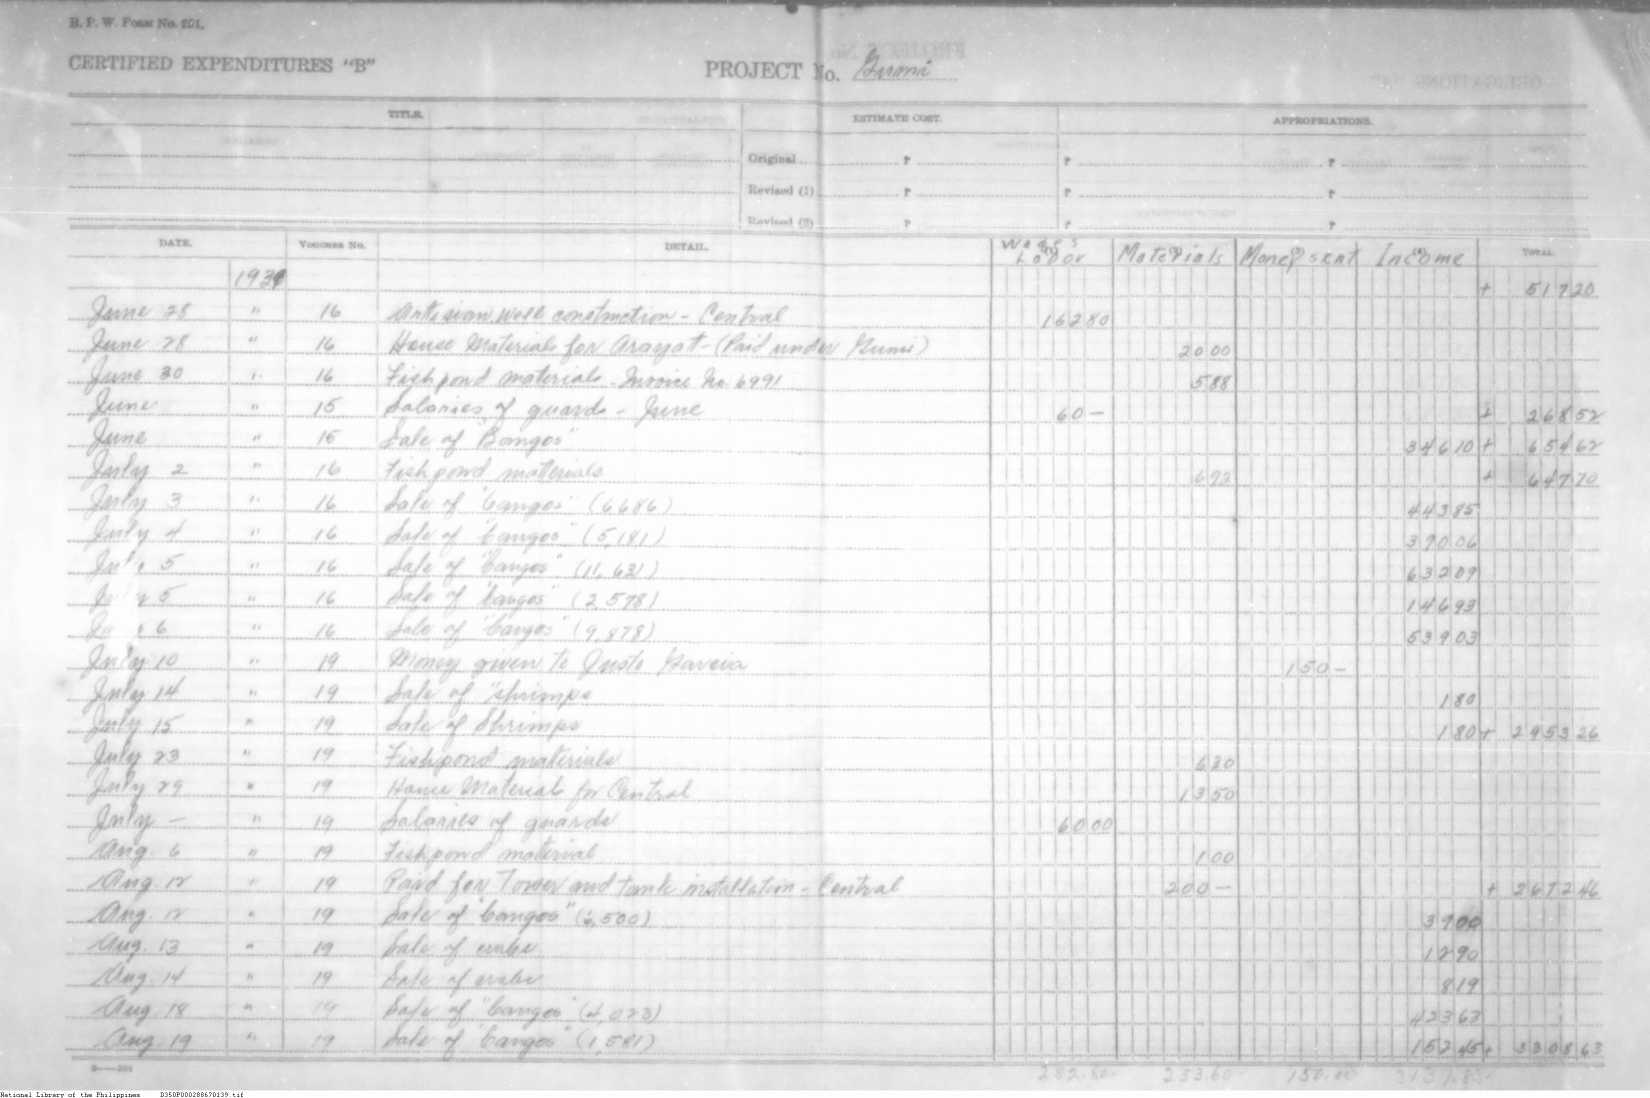 B. P. W. Form No. 201.
CERTIFIED EXPENDITURES "B" PROJECT No.
TITLE. ESTIMATE COST. APPROPRIATIONS.
Original ₱ ₱ ₱
Revised (1) ₱ ₱ ₱
Revised (2) ₱ ₱ ₱
DATE. VOUCHER No. DETAIL. Wages Labor Materials Money sent Income TOTAL.
1934 + 517 20
June 28 " 16 Artesian well construction - Central 162 80
June 28 " 16 House Materials for Arayat - (Paid under Gumi) 20 00
June 30 " 16 Fishpond materials - Invoice No. 6991 5 88
June " 15 Salaries of guards - June 60 — + 268 52
June " 15 Sale of "Bangos" 346 10 + 654 62
July 2 " 16 Fishpond materials 6 92 + 647 70
July 3 " 16 Sale of "bangos" (6,686) 443 85
July 4 " 16 Sale of "bangos" (5,181) 390 06
July 5 " 16 Sale of "bangos" (11,621) 632 09
July 5 " 16 Sale of "bangos" (2,578) 146 93
6 " 16 Sale of "bangos" (9,878) 539 03
July 10 " 19 Money given to Justo Garcia 150 —
July 14 " 19 Sale of "shrimps 1 80
July 15 " 19 Sale of Shrimps 1 80 + 2953 26
July 23 " 19 Fishpond materials 6 30
July 29 " 19 House Materials for Central 13 50
July — " 19 Salaries of guards 60 00
Aug. 6 " 19 Fishpond material 1 00
Aug. 12 " 19 Paid for Tower and tank installation - Central 200 — + 2672 46
Aug. 12 " 19 Sale of "bangos" (6,500) 39 00
Aug. 13 " 19 Sale of crabs 12 90
Aug. 14 " 19 Sale of crabs 8 19
Aug. 18 " 19 Sale of "bangos" (4,023) 423 63
Aug. 19 " 19 Sale of "bangos" (1,581) 152 45 + 3308 63
282.80 233.60 150.00
National Library of the Philippines D350P000288670139.tif